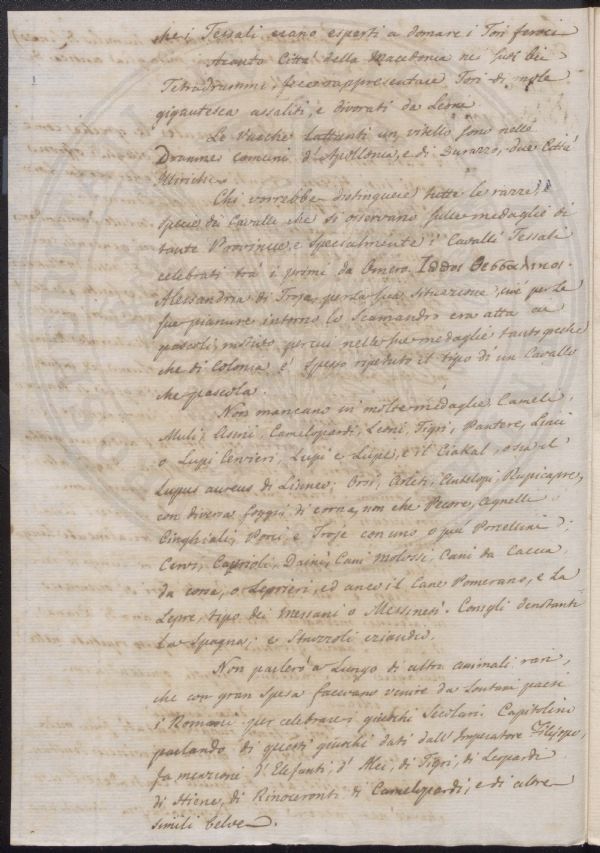 che i Tessali erano esperti a domare i Tori feroci
Acanto Città della Macedonia nei suoi bei
Tetradrammi, fece rappresentare Tori di mole
gigantesca assaliti, e divorati da Leone
Le Vacche lattanti un vitello sono nelle
Dramme comuni d'Apollonia, e di Durazzo, due Città
Illiriche.
Chi vorrebbe distinguere tutte le razze,
specie dei Cavalli che si osservano sulle medaglie di
tante Provincie, e specialmente i Cavalli Tessali
celebrati tra i primi da Omero
Alessandria di Troja, per la sua situazione, cioè per le
sue pianure intorno lo Scamandro era atta ai
pascoli; motivo per cui nelle sue medaglie tanto greche
che di Colonia è spesso ripetuto il tipo di un Cavallo
che pascola.
Non mancano in molte medaglie Cameli,
Muli, Asini, Camelopardi, Leoni, Tigri, Pantere, Linci
o Lupi Cervieri, Lupi e Lupe, e il Ciakal, o sia il
Lupus aureus di Linneo; Orsi, Arieti, Antelopi, Rupicapre,
con diverse foggie di corna, non che Pecore, Agnelle
Cinghiali, Porci, e Troje con uno, o più Porcellini;
Cervi, Caprioli, Daini, Cani Molossi, Cani da Caccia
da corsa, o Leprieri, ed anco il Cane Pomerano, e la
Lepre, tipo dei Messani o Messinesi. Conigli denotanti
la Spagna; e Struzzoli eziandio.
Non parlerò a lungo di altri animali rari,
che con gran spesa facevano venire da lontani paesi
i Romani per celebrare i giuochi Secolari. Capitolini
parlando di questi giuochi dati dall'Imperatore Filippo,
fa menzione d'Elefanti, d'Alci, di Tigri, di Leopardi
di Hiene, di Rinoceronti, di Camelopardi, e di altre
simili belve.